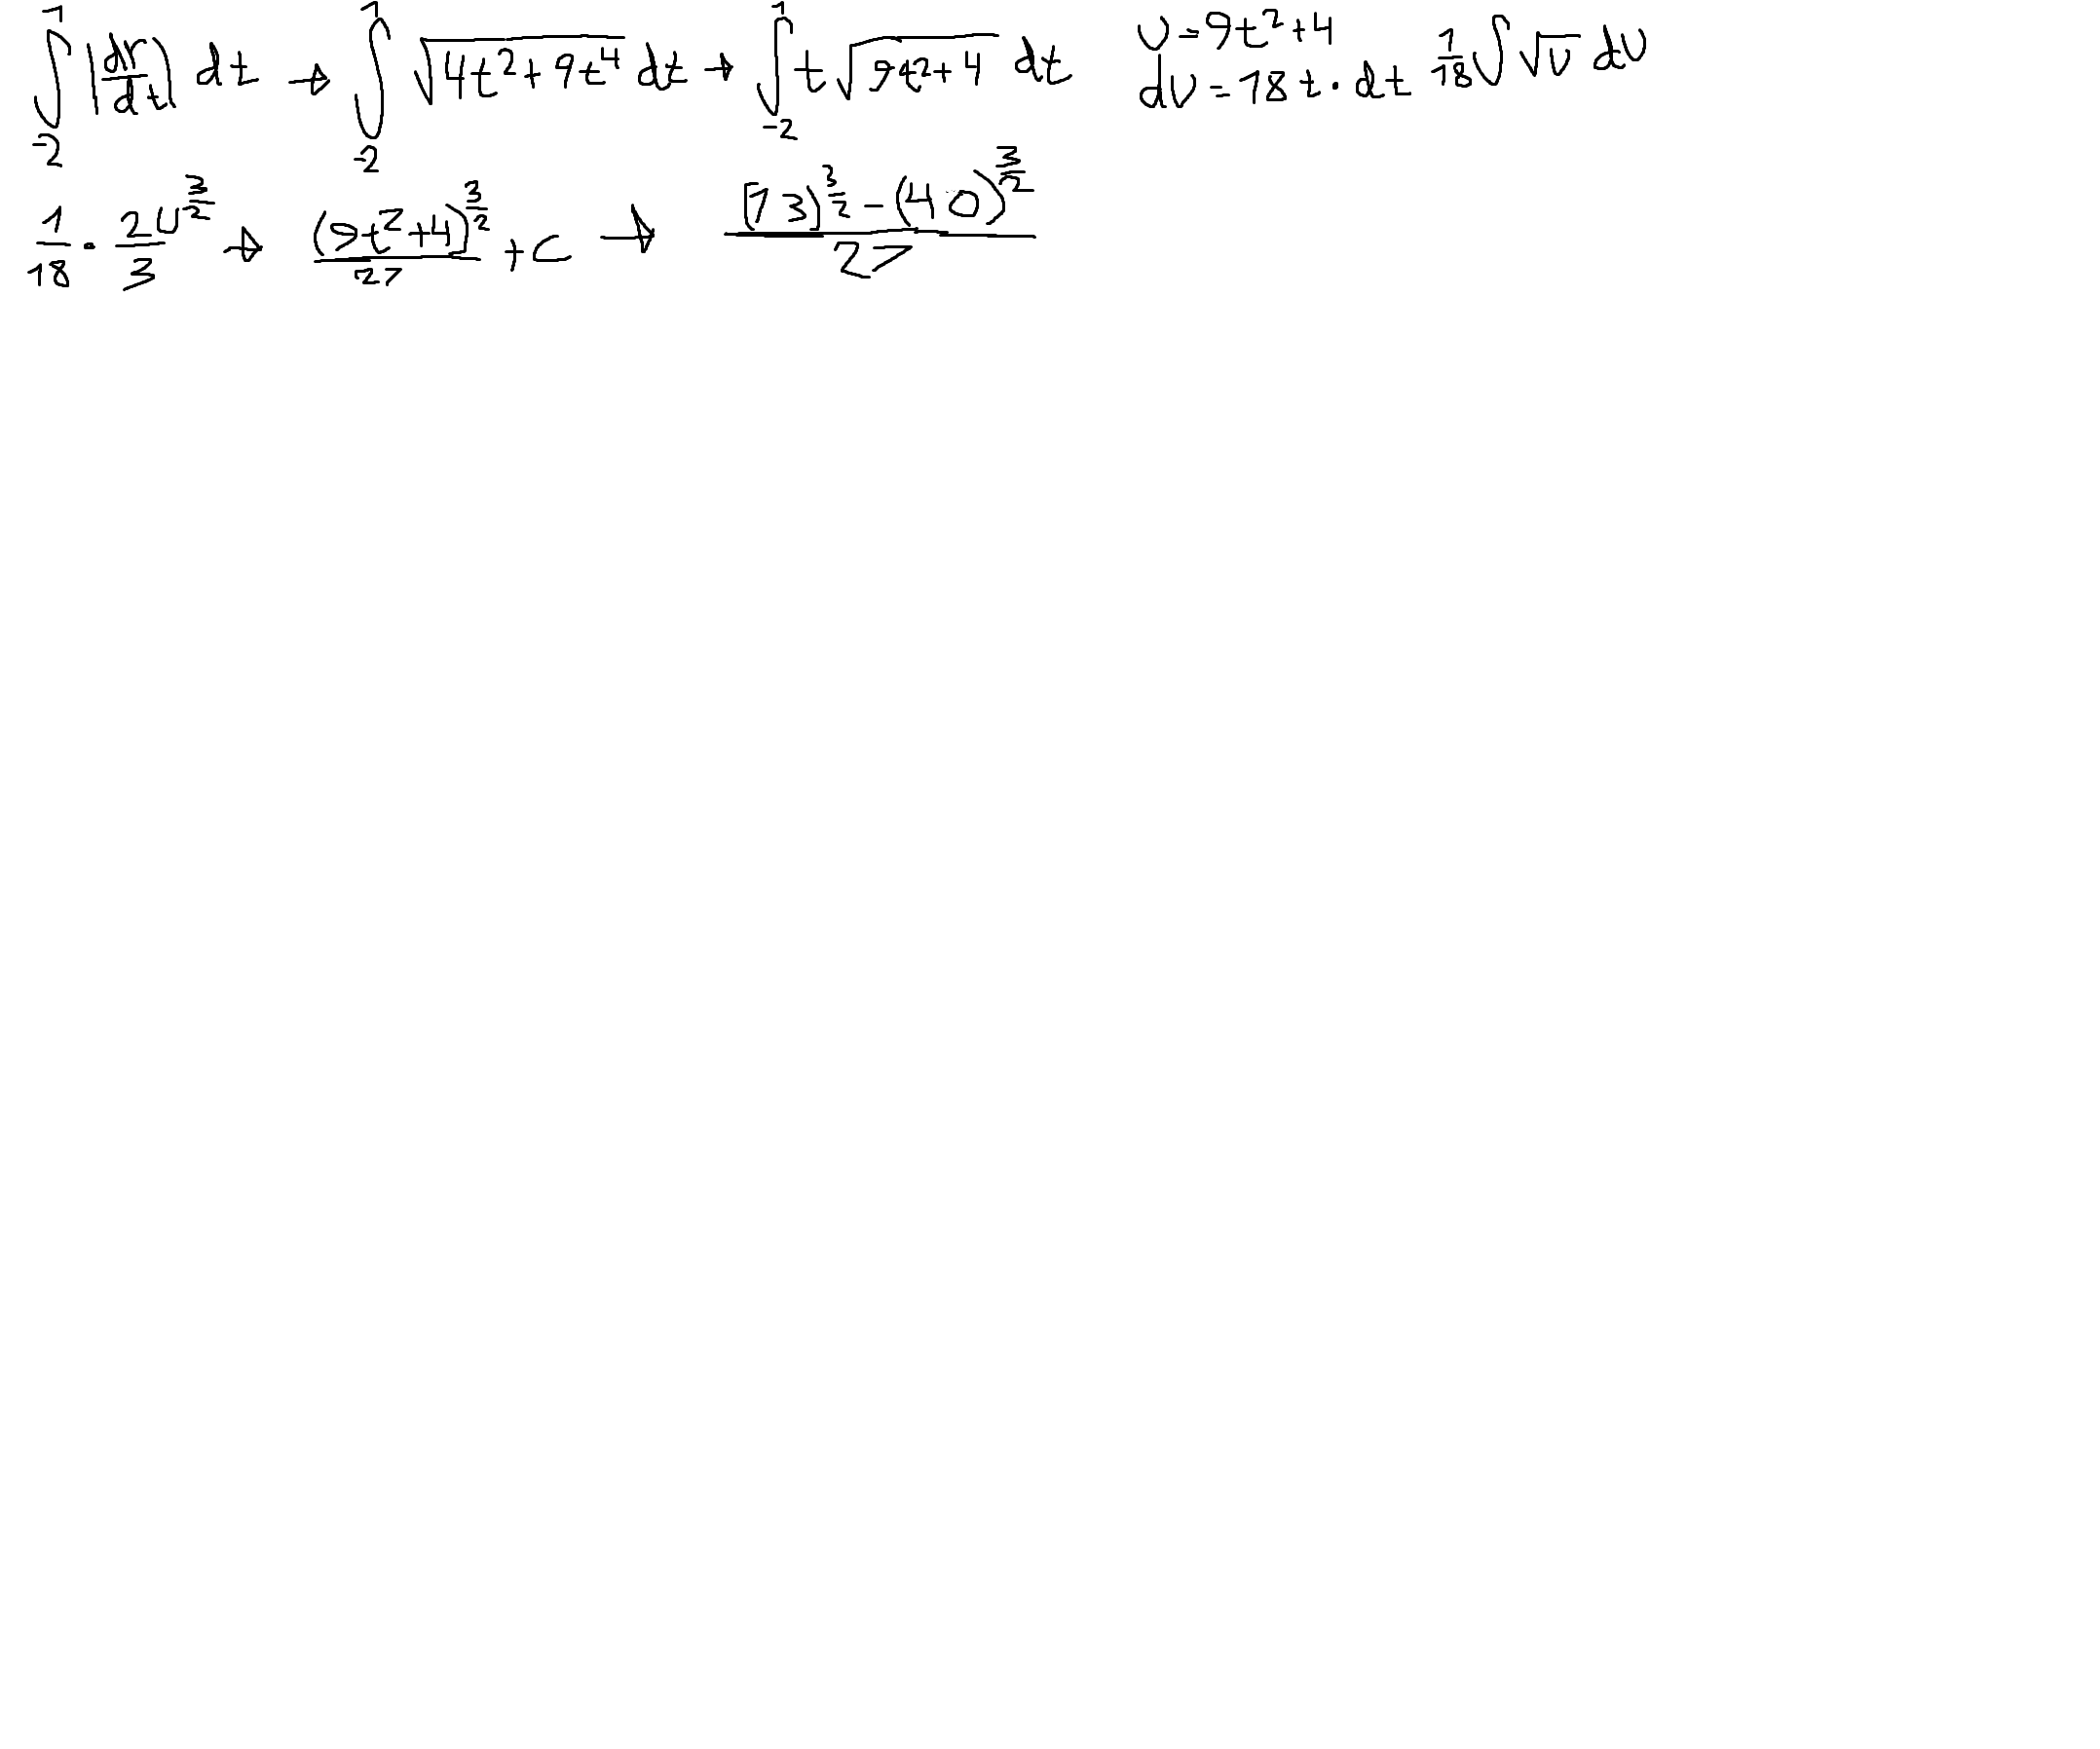 ∫_{-2}^{1} |dr/dt| dt → ∫_{-2}^{1} √(4t²+9t⁴) dt → ∫_{-2}^{1} t√(9t²+4) dt  U=9t²+4  dU=18t·dt  1/18 ∫√U dU
1/18 · 2U^{3/2}/3 → (9t²+4)^{3/2}/27 + C → ((13)^{3/2} - (40)^{3/2})/27